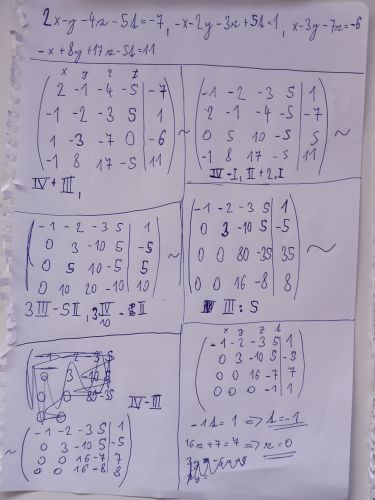 2x-y-4z-5t=-7, -x-2y-3z+5t=1, x-3y-7z=-6
-x+8y+17z-5t=11
x y z t
2 -1 -4 -5 | -7
-1 -2 -3 5 | 1
1 -3 -7 0 | -6
-1 8 17 -5 | 11
~
IV+III,
-1 -2 -3 5 | 1
2 -1 -4 -5 | -7
0 5 10 -5 | 5
-1 8 17 -5 | 11
~
IV-I, II+2.I
-1 -2 -3 5 | 1
0 3 -10 5 | -5
0 5 10 -5 | 5
0 10 20 -10 | 10
~
3III-5II, 3IV/10 - II
-1 -2 -3 5 | 1
0 3 -10 5 | -5
0 0 80 -35 | 35
0 0 16 -8 | 8
~
III:5
IV-III
~
-1 -2 -3 5 | 1
0 3 -10 5 | -5
0 0 16 -7 | 7
0 0 16 -8 | 8
x y z t
-1 -2 -3 5 | 1
0 3 -10 5 | -5
0 0 16 -7 | 7
0 0 0 -1 | 1
-1t=1 => t=-1
16z+7=7 => z=0